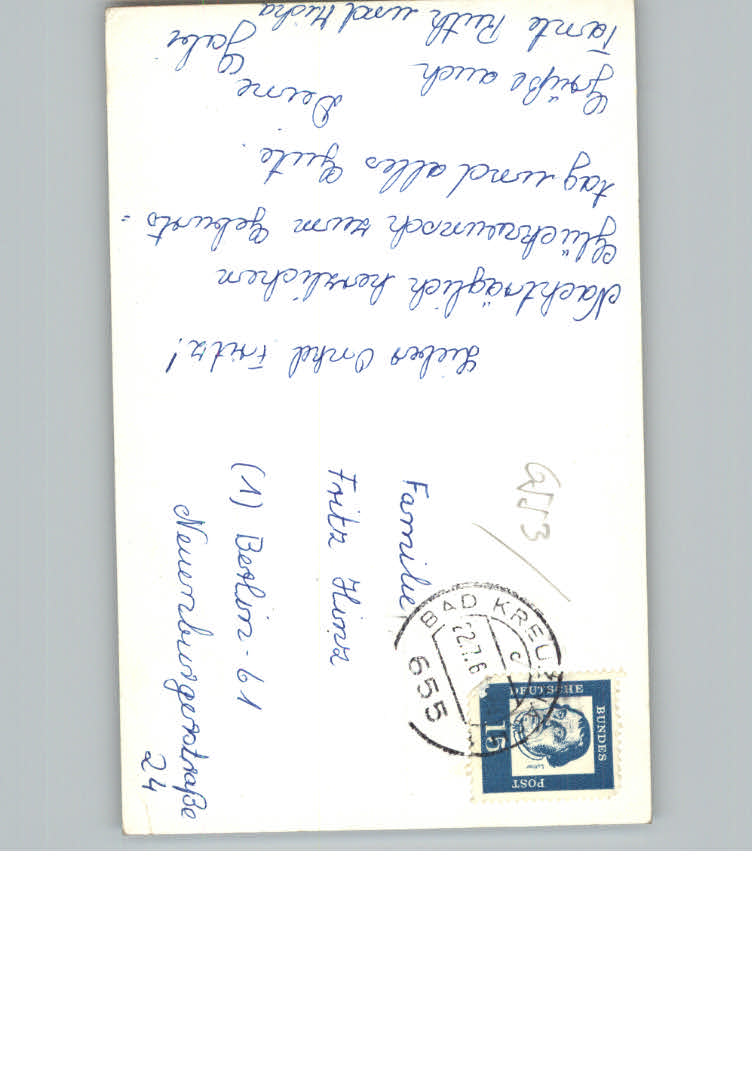 Lieber Onkel Fritz!
Nachträglich herzlichen
Glückwunsch zum Geburts=
tag und alles Gute.
Deine
Gabi
Grüße auch
Tante Ruth und Micha
Familie
Fritz Hinz
(1) Berlin - 61
Neuenburgerstraße
24
BAD KREUZ
22.7.6
c
655
DEUTSCHE
BUNDES
POST
15
Luther